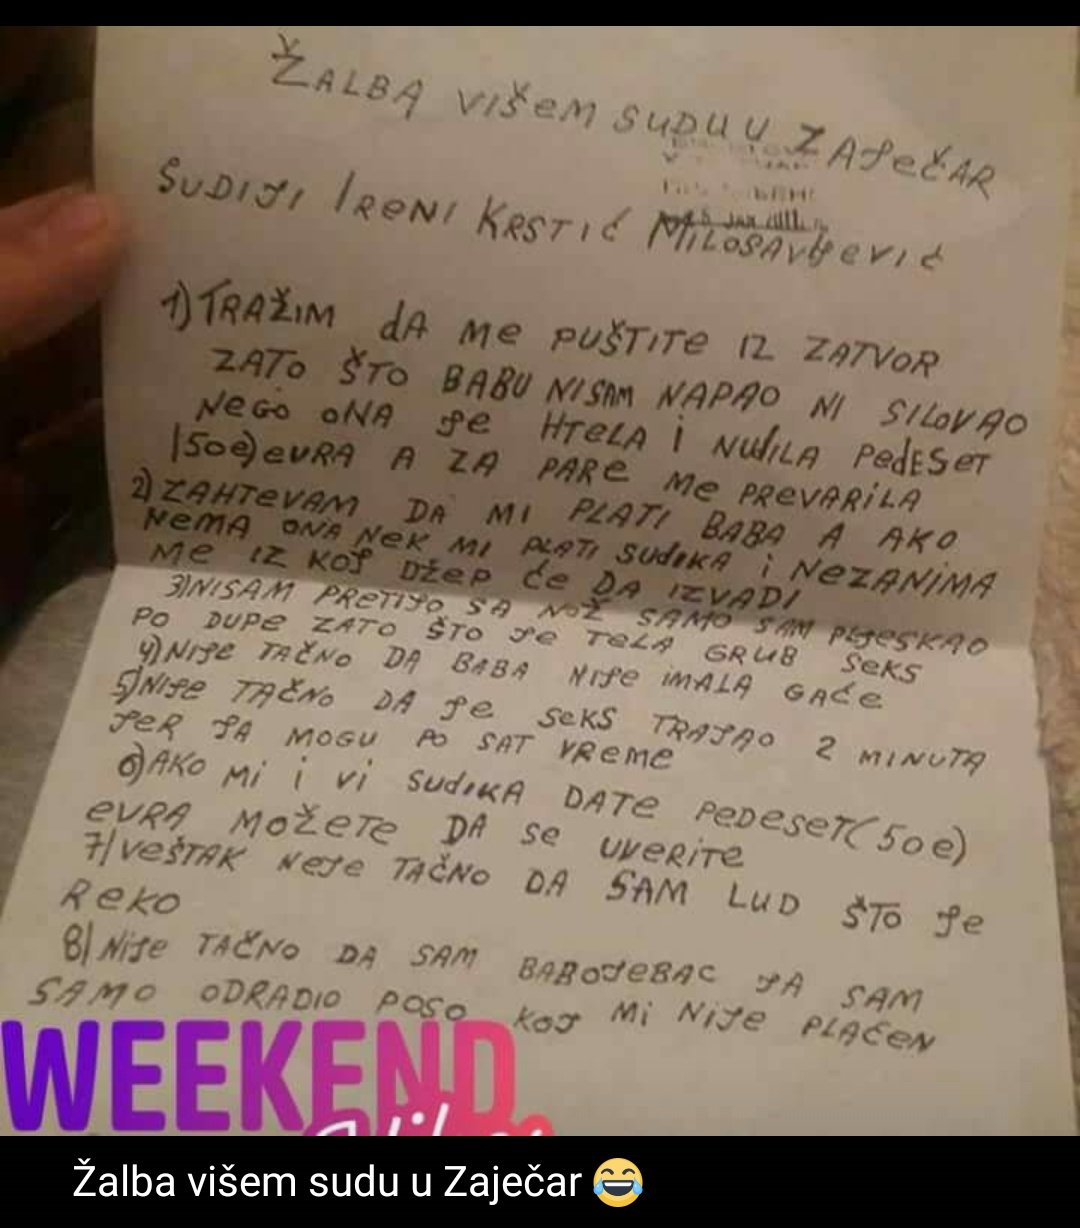 ŽALBA VIŠEM SUDU U ZAJEČAR
SUDIJI IRENI KRSTIĆ MILOSAVLJEVIĆ
1) TRAŽIM dA Me PUŠTITe IZ ZATVOR
ZATO ŠTO BABU NISAM NAPAO NI SILOVAO
NeGO ONA Je HTeLA i NUdILA PedESeT
(50e) eVRA A ZA PARe Me PReVARiLA
2) ZAHTeVAM DA MI PLATI BABA A AKO
NeMA ONA NeK MI PLATI SUdIKA i NeZANIMA
Me IZ KOJ DžeP ĆE DA IZVADI
3) NISAM PReTIJO SA NOŽ SAMO SAM PLJeSKAO
PO DUPe ZATO ŠTO Je TeLA GRUB SeKS
4) NIJe TAČNO DA BABA NIJe iMALA GAĆe
5) NIJe TAČNO DA Je SeKS TRAJAO 2 MINUTA
JeR JA MOGU PO SAT VReMe
6) AKO Mi i Vi SUdIKA DATe PeDeSeT (50e)
eVRA MOŽeTe DA Se UVeRiTe
7) VeŠTAK NeJe TAČNO DA SAM LUD ŠTO Je
ReKO
8) NIJe TAČNO DA SAM BABOJeBAC JA SAM
SAMO ODRADIO POSO KOJ Mi NIJe PLAĆeN
WEEKEND
Žalba višem sudu u Zaječar 😂